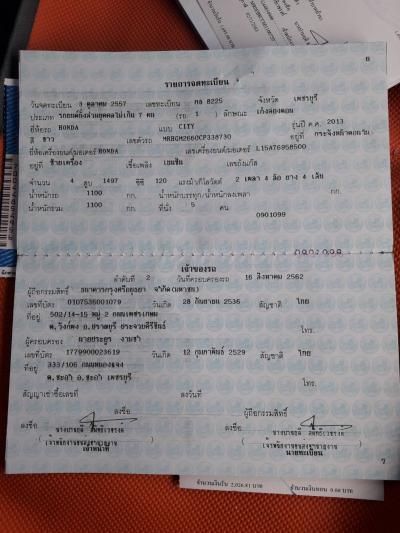 6
รายการจดทะเบียน
วันจดทะเบียน 3 ตุลาคม 2557 เลขทะเบียน กอ 8225 จังหวัด เพชรบุรี
ประเภท รถยนต์นั่งส่วนบุคคลไม่เกิน 7 คน (รย 1 ) ลักษณะ เก๋งสองตอน
ยี่ห้อรถ HONDA แบบ CITY รุ่นปี ค.ศ. 2013
สี ขาว เลขตัวรถ MRHGM2660CP338730 อยู่ที่
ยี่ห้อเครื่องยนต์/มอเตอร์ HONDA เลขเครื่องยนต์/มอเตอร์ L15A76958500
อยู่ที่ เชื้อเพลิง เบนซิน เลขถังแก๊ส
จำนวน 4 สูบ 1497 ซีซี 120 แรงม้า/กิโลวัตต์ 2 เพลา 4 ล้อ ยาง 4 เส้น
น้ำหนักรถ 1100 กก. น้ำหนักบรรทุก/น้ำหนักลงเพลา กก.
น้ำหนักรวม 1100 กก. ที่นั่ง 5 คน
0901099
เจ้าของรถ
ลำดับที่ 2 วันที่ครอบครองรถ 16 สิงหาคม 2562
ผู้ถือกรรมสิทธิ์ ธนาคารกรุงศรีอยุธยา จำกัด(มหาชน)
เลขที่บัตร 0107536001079 วันเกิด 28 กันยายน 2536 สัญชาติ ไทย
ที่อยู่ 502/14-15 หมู่ 2 ถนนเพชรเกษม
ต.วังก์พง อ.ปราณบุรี ประจวบคีรีขันธ์ โทร.
ผู้ครอบครอง นายประยูร งามขำ
เลขที่บัตร 1779900023619 วันเกิด 12 กุมภาพันธ์ 2529 สัญชาติ ไทย
ที่อยู่ 333/106
ต.ชะอำ อ.ชะอำ เพชรบุรี โทร.
สัญญาเช่าซื้อเลขที่ ลงวันที่
ลงชื่อ ผู้ถือกรรมสิทธิ์
ลงชื่อ ลงชื่อ
เจ้าหน้าที่ นายทะเบียน
7
จำนวนเงินรับ 2,026.81 บาท จำนวนเงินทอน 0.00 บาท